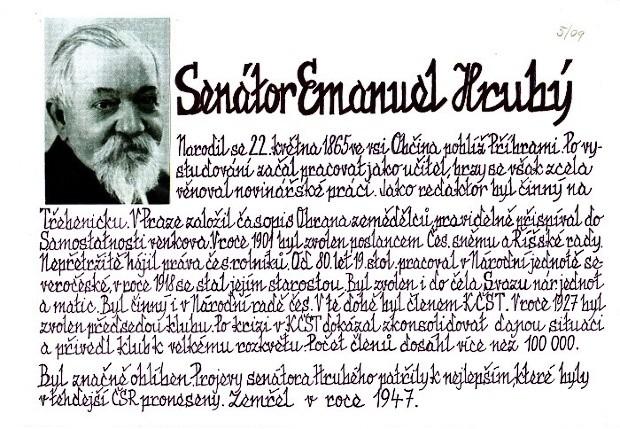 5/09
Senátor Emanuel Hrubý
Narodil se 22. května 1865 ve vsi Občina poblíž Příbrami. Po vy-
studování začal pracovat jako učitel, brzy se však zcela
věnoval novinářské práci. Jako redaktor byl činný na
Třebenicku. V Praze založil časopis Obrana zemědělců, pravidelně přispíval do
Samostatnosti venkova. V roce 1901 byl zvolen poslancem Čes. sněmu a Říšské rady.
Nepřetržitě hájil práva čes. rolníků. Od 80. let 19. stol. pracoval v Národní jednotě se-
veročeské, v roce 1918 se stal jejím starostou. Byl zvolen i do čela Svazu nár. jednot
a matic. Byl činný i v Národní radě čes. V té době byl členem KČST. V roce 1927 byl
zvolen předsedou klubu. Po krizi v KČST dokázal zkonsolidovat danou situaci
a přivedl klub k velkému rozkvětu. Počet členů dosáhl více než 100 000.
Byl značně oblíben. Projevy senátora Hrubého patřily k nejlepším, které byly
v tehdejší ČSR proneseny. Zemřel v roce 1947.